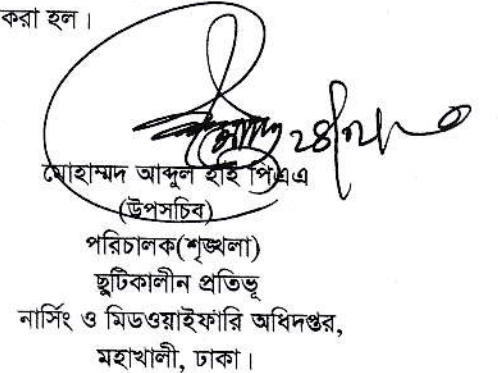 করা হল।
মোহাম্মদ আব্দুল হাই পিএএ
(উপসচিব)
পরিচালক(শৃঙ্খলা)
ছুটিকালীন প্রতিভূ
নার্সিং ও মিডওয়াইফারি অধিদপ্তর,
মহাখালী, ঢাকা।